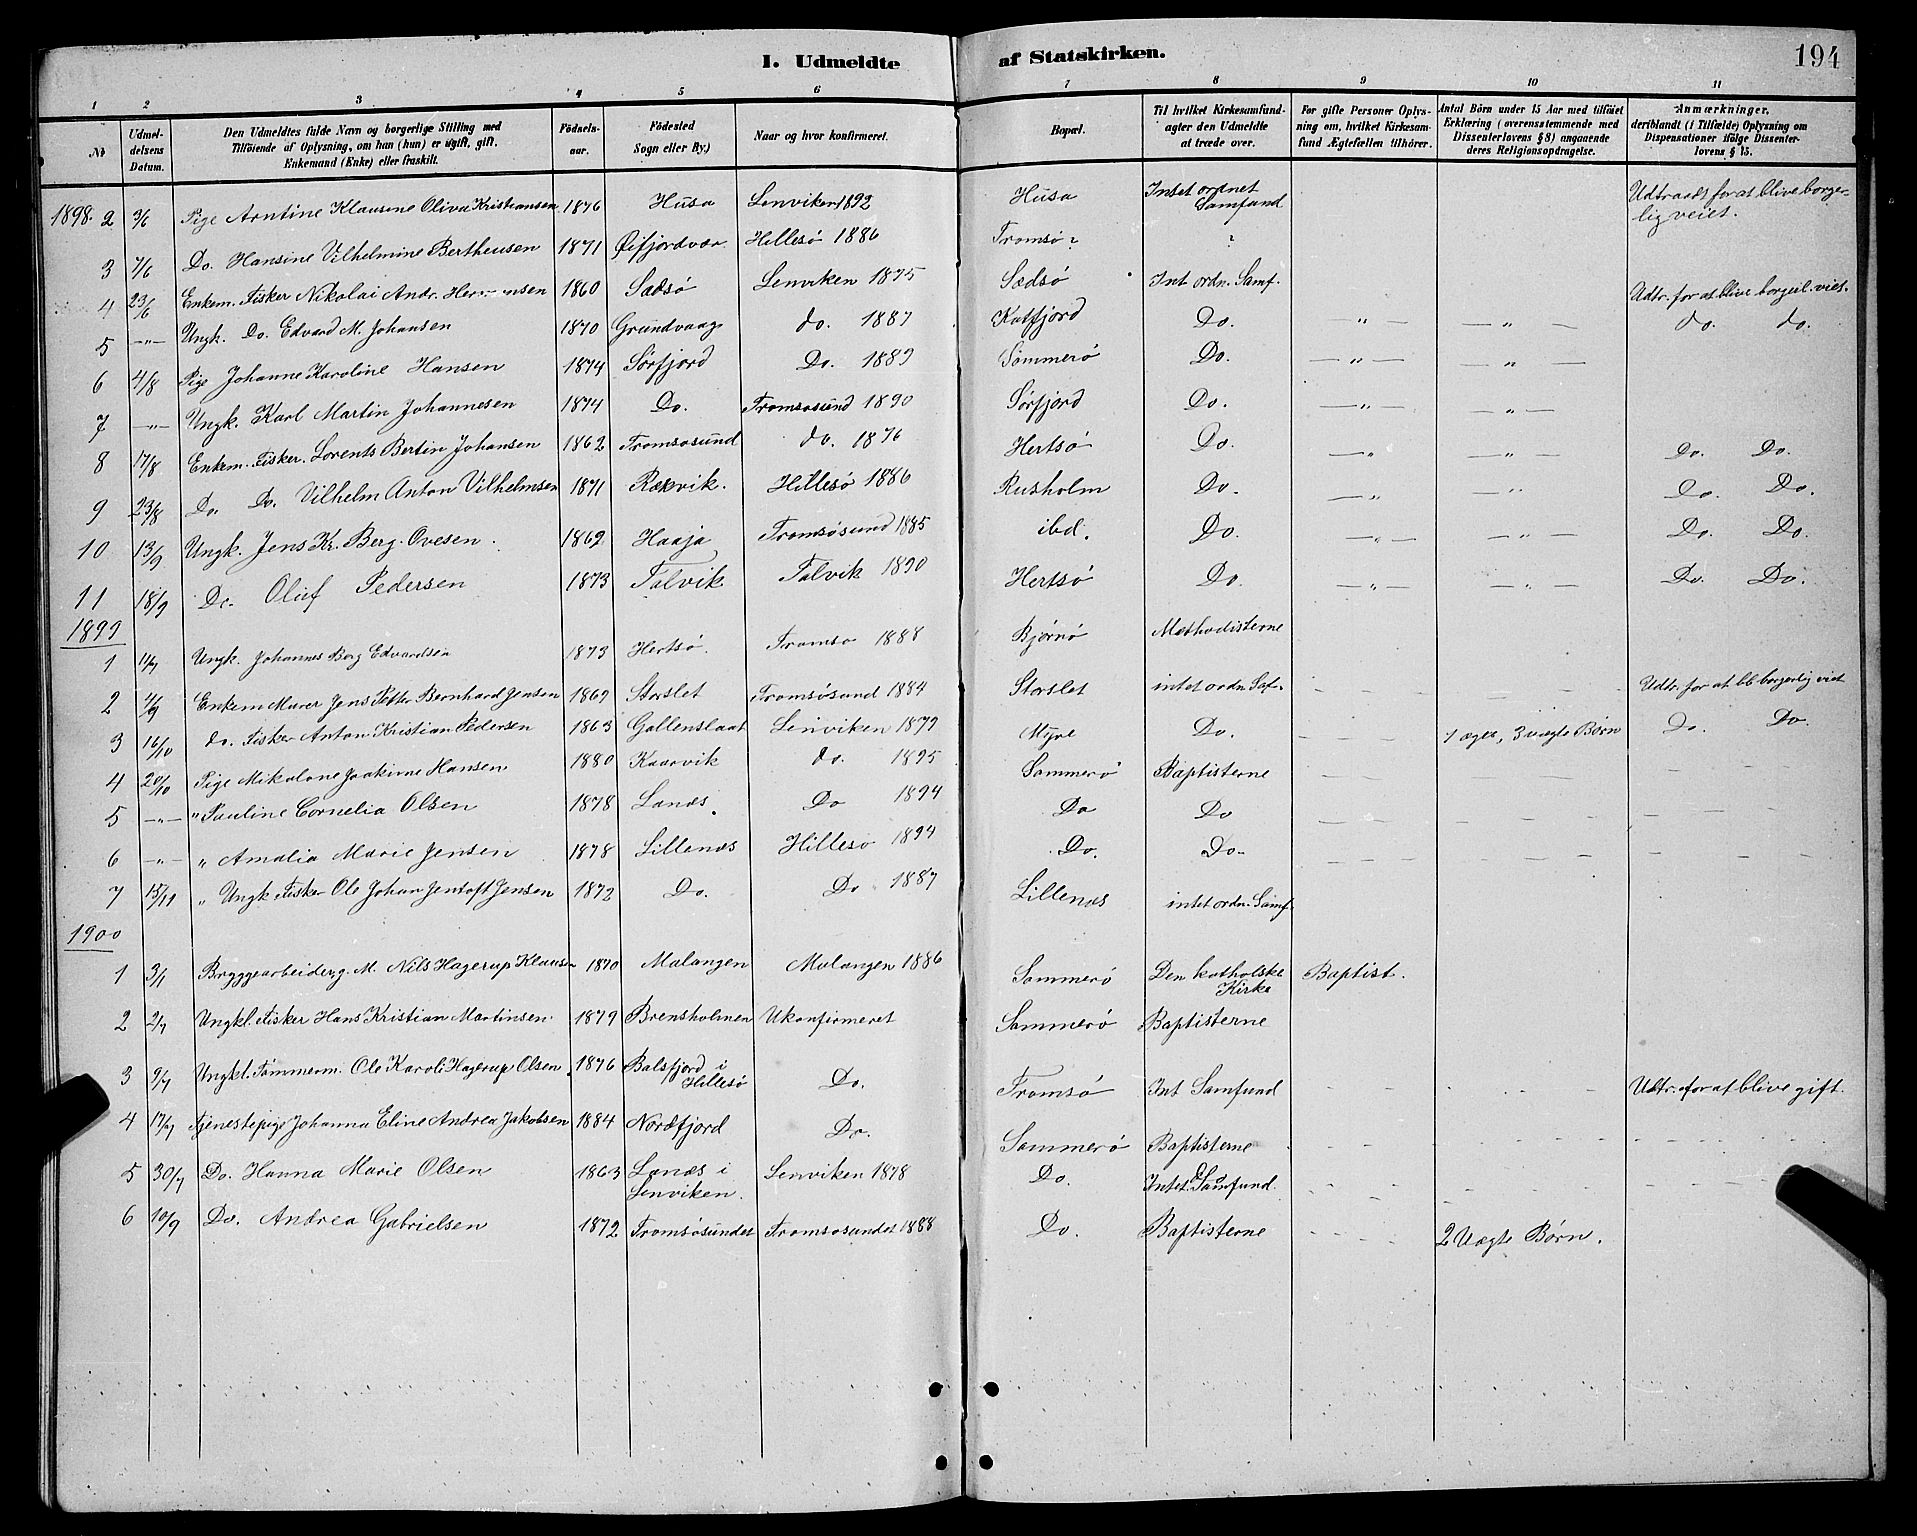 I. Udmeldte af Statskirken. 194
1 2 3 4 5 6 7 8 9 10 11
№ | Udmeldelsens Datum. | Den Udmeldtes fulde Navn og borgerlige Stilling med Tilföiende af Oplysning, om han (hun) er ugift, gift, Enkemand (Enke) eller fraskilt. | Födselsaar. | Födested Sogn eller By.) | Naar og hvor konfirmeret. | Bopæl. | Til hvilket Kirkesamfund agter den Udmeldte at træde over. | For gifte Personer Oplysning om, hvilket Kirkesamfund Ægtefællen tilhörer. | Antal Börn under 15 Aar med tilföiet Erklæring (overensstemmende med Dissenterlovens § 8) angaaende deres Religionsopdragelse. | Anmærkninger, deriblandt (i Tilfælde) Oplysning om Dispensationer ifölge Dissenterlovens § 15.
1898. 2 3/6 Pige Arntine Klausine Oliva Kristiansen 1876 Husa Lenviken 1892 Husa Intet ordnet Samfund Udtraadt for at blive borgerlig viet.
3 7/6 Do. Hansine Vilhelmine Bertheusen 1871 Øifjordvær Hillesø 1886 Tromsø? ?
4 23/6 Enkem. Fisker Nikolai Andr. 1860 Sædsø Lenviken 1875 Sædsø Int ordn. Samf. Udtr. for at blive borgerl. viet.
5 -"- Ungk. Do. Edvard M. Johansen 1870 Grundvaag do. 1887 Katfjord Do. — " — — " — do. do.
6 4/8 Pige Johanne Karoline Hansen 1874 Sørfjord Do. 1889 Sommerø Do. — " — — " —
7 -"- Ungk. Karl Martin Johannesen 1874 Do. Tromsosund 1890 Sørfjord Do. — " — — " —
8 17/8 Enkem. Fisker. Lorents Bertin Johansen 1862 Tromsosund do. 1876 Hertsø Do. — " — " — Do. Do.
9 23/8 Do. Do. Vilhelm Anton Vilhelmsen 1871 Rækvik. Hillesø 1886 Rusholm Do. — " — " — Do. Do.
10 13/9 Ungk. Jens Kr. Berg Ovesen. 1862 Haaja Tromsøsund 1885 ibd. Do. — " — — " — Do. Do.
11 18/9 Do. Oluf Pedersen 1873 Talvik Talvik 1890 Hertsø Do. — " — — " — Do. Do.
1899
1 11/7 Ungk. Johannes Berg Edvardsen 1873 Hertsø. Tromso 1888 Bjørnø Methodisterne
2 4/9 Enkem Murer Jens Petter Bernhard Jensen 1869 Storslet Tromsøsund 1884 Storslet intet ordn. Saf. Udtr. for at bli borgerlig viet
3 16/10 do. Fisker Anton Kristian Pedersen 1863 Gallenslaat Lenviken 1879 Myre Do. 1 ægte, 3 uægte Børn Do. Do.
4 20/10 Pige Mikaline Joakime Hansen 1880 Kaarvik do. 1895 Sommerø Baptisterne
5 -"- " Pauline Cornelia Olsen 1878 Lanes. Do 1894 Do Do
6 -"- " Amalia Marie Jensen 1878 Lillenæs Hillesø 1894 Do. Do.
7 13/11 " Ungk Fisker Ole Johan Jentoft Jensen 1872 Do. Do 1887 Lillenæs intet ordn. Samf.
1900
1 3/1 Bryggearbeider, g. M. Nils Hagerup Klausen 1870 Malangen Malangen 1886 Sommerø Den katholske Kirke Baptist.
2 2/7 Ungkl. Fisker Hans Kristian Martinsen. 1879 Brensholmen Ukonfirmeret Sommerø Baptisterne
3 9/7 Ungkl. Tømmerm. Ole Karoli Hagerup Olsen. 1876 Balsfjord i Hillesø Do. Tromsø Int Samfund Udtr. for at blive gift.
4 17/7 Tjenestepige Johanna Eline Andrea Jakobsen 1884 Nordfjord Do. Sommerø Baptisterne
5 30/7 Do. Hanna Marie Olsen 1863 Lanæs i Lenviken. Lenviken 1878 Do. Intet Samfund.
6 10/9 Do. Andrea Gabrielsen 1872 Tromsøsundet Tromsøsundet 1888 Do. Baptisterne 2 Uægte Børn.